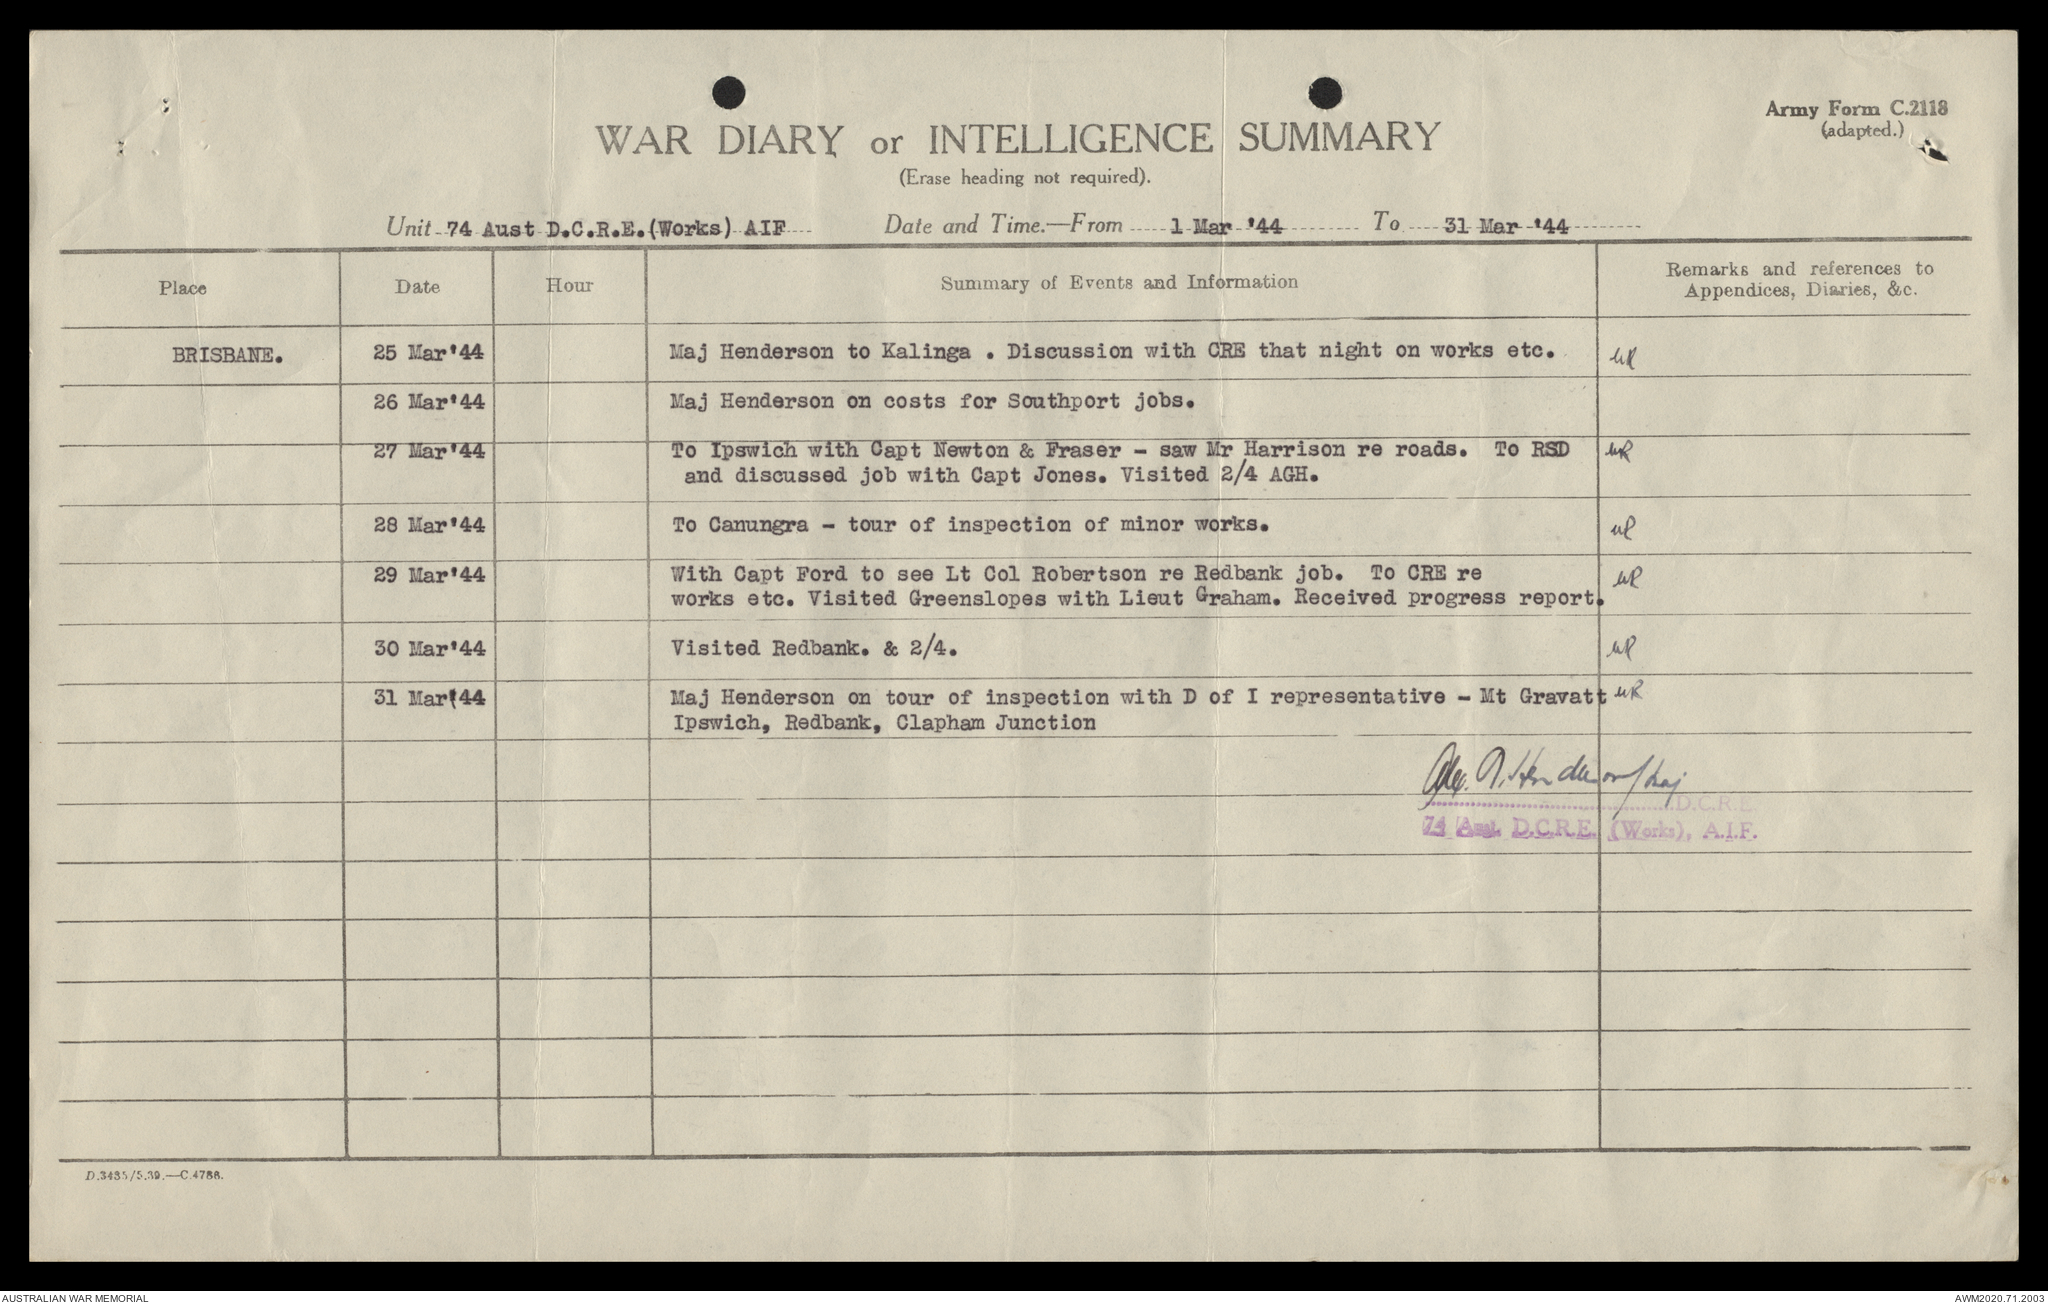 Army Form C.2118
(adapted.)
WAR DIARY or INTELLIGENCE SUMMARY
(Erase heading not required).
Unit 74 Aust D.C.R.E.(Works) AIF Date and Time.—From 1 Mar '44 To 31 Mar '44
Place Date Hour Summary of Events and Information Remarks and references to
Appendices, Diaries, &c.
BRISBANE. 25 Mar'44 Maj Henderson to Kalinga . Discussion with CRE that night on works etc.
26 Mar'44 Maj Henderson on costs for Southport jobs.
27 Mar'44 To Ipswich with Capt Newton & Fraser - saw Mr Harrison re roads. To RSD
and discussed job with Capt Jones. Visited 2/4 AGH.
28 Mar'44 To Canungra - tour of inspection of minor works.
29 Mar'44 With Capt Ford to see Lt Col Robertson re Redbank job. To CRE re
works etc. Visited Greenslopes with Lieut Graham. Received progress report.
30 Mar'44 Visited Redbank. & 2/4.
31 Mar'44 Maj Henderson on tour of inspection with D of I representative - Mt Gravatt
Ipswich, Redbank, Clapham Junction
Henderson Maj
D.C.R.E.
74 Aust. D.C.R.E. (Works), A.I.F.
D.3435/5.39.—C.4788.
AUSTRALIAN WAR MEMORIAL AWM2020.71.2003